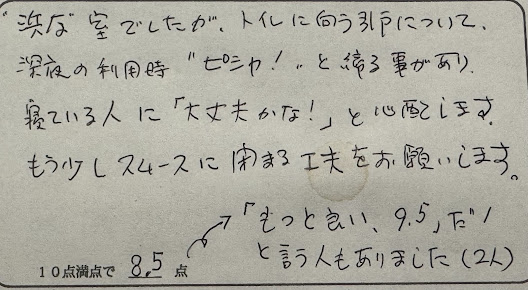 "浜な"室でしたが、トイレに向う引戸について、
深夜の利用時 "ピシャ!" と締る事があり、
寝ている人に「大丈夫かな!」と心配します。
もう少しスムースに閉まる工夫をお願いします。
「もっと良い、9.5」だ!
10点満点で 8.5 点
と言う人もありました(2人)